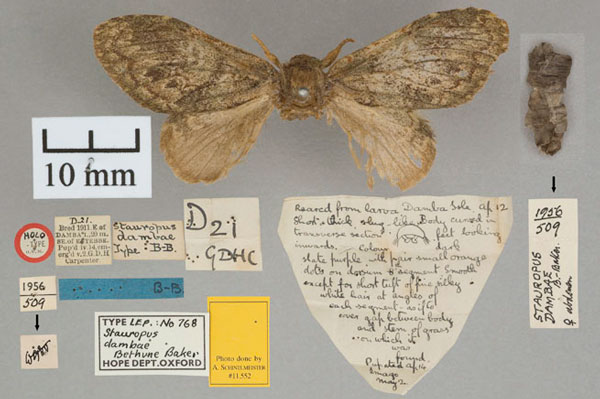 10 mm
HOLO
TYPE
D.21.
Bred 1911. E of
DAMBA I., 20 m.
SE. of ENTEBBE.
Pup'd iv.14, em-
erg'd v.2. G.D.H.
Carpenter
Stauropus
dambae
Type B-B.
D 21
GDHC
1956
509
B-B
TYPE LEP.: No 768
Stauropus
dambae
Bethune Baker
HOPE DEPT. OXFORD
Photo done by
A. SCHINTLMEISTER
#11.552
Reared from larva Damba Isle Ap. 12
Short & thick slug-like Body curved in
transverse section feet looking
inwards. Colour dark
slate purple with pair small orange
dots on dorsum segment Smooth
except for short tuft of fine silky
white hair at angles of
each segment - so
over gap between body
and stem of grass
on which it
was
found.
Pupated Ap. 14
Imago
May 2
1956
509
STAUROPUS
DAMBAE
B.-Baker.